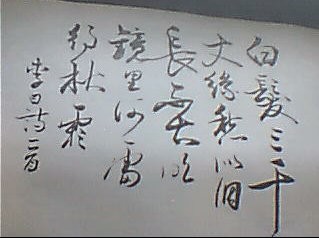 白髮三千
丈緣愁似個
長不知明
鏡里何處
得秋霜
李白詩一首